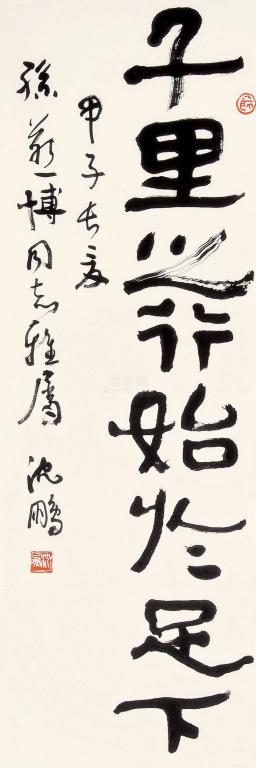 千里之行始於足下
甲子長夏
孫蘇博同志雅属 沈鵬